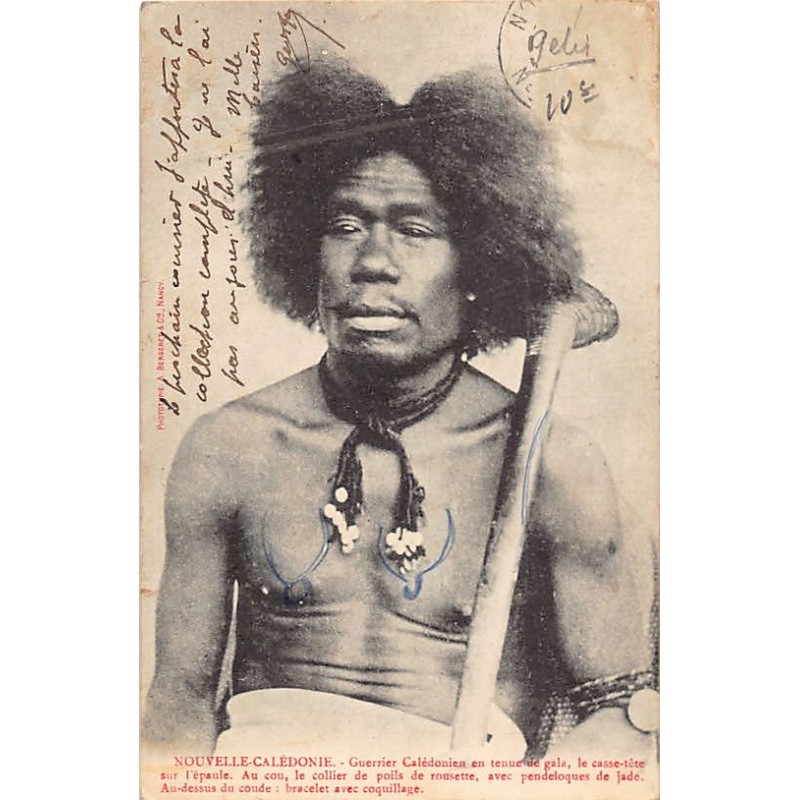 le prochain courrier j'apporterai la
collection complète - Je ne l'ai
pas aujourd'hui - Mille
baisers.
Gelis
10c
PHOTOTYPIE A. BERGERET & Cie, NANCY.
NOUVELLE-CALÉDONIE. - Guerrier Calédonien en tenue de gala, le casse-tête
sur l'épaule. Au cou, le collier de poils de rousette, avec pendeloques de jade.
Au-dessus du coude : bracelet avec coquillage.